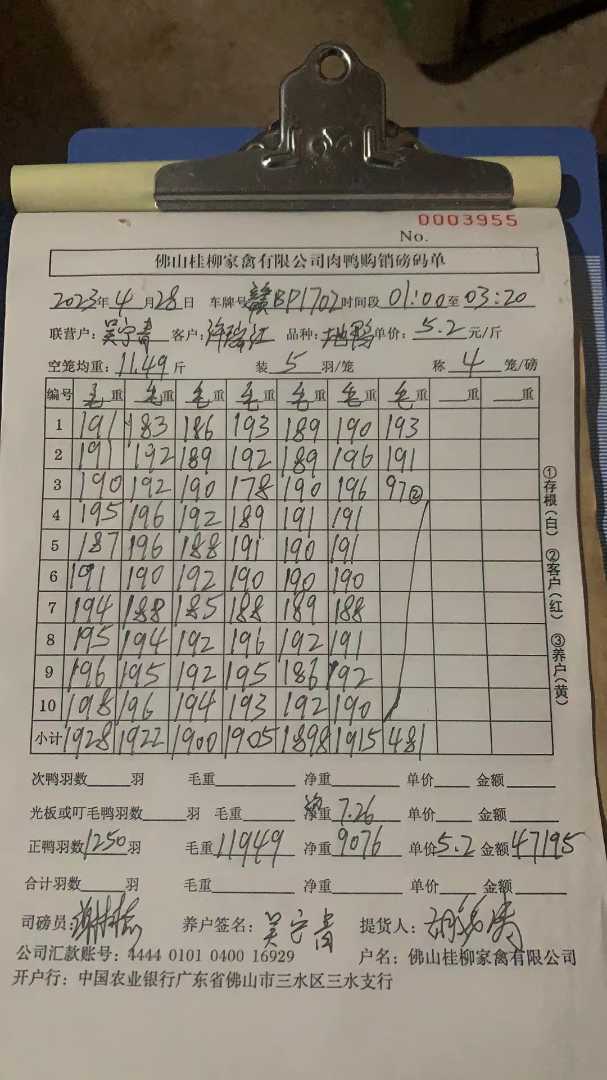 0003955
No.
佛山桂柳家禽有限公司肉鸭购销磅码单
2023年4月28日 车牌号赣BP1702时间段01:00至03:20
联营户:吴宁青 客户:许瑞红 品种:地鸭 单价:5.2元/斤
空笼均重:11.49斤 装5羽/笼 称4笼/磅
编号 毛重 毛重 毛重 毛重 毛重 毛重 毛重 重 重
1 191 183 186 193 189 190 193
2 191 192 189 192 189 196 191
3 190 192 190 178 190 196 97②
4 195 196 192 189 191 191
5 187 196 188 191 190 191
6 191 190 192 190 190 190
7 194 188 185 188 189 188
8 195 194 192 196 192 191
9 196 195 192 195 186 192
10 198 196 194 193 192 190
小计 1928 1922 1900 1905 1898 1915 481
①存根(白) ②客户(红) ③养户(黄)
次鸭羽数 羽 毛重 净重 单价 金额
光板或叮毛鸭羽数 羽 毛重 净重7.26 单价 金额
正鸭羽数1250羽 毛重11949 净重9076 单价5.2 金额47195
合计羽数 羽 毛重 净重 单价 金额
司磅员: 养户签名:吴宁青 提货人:
公司汇款账号:4444 0101 0400 16929 户名:佛山桂柳家禽有限公司
开户行:中国农业银行广东省佛山市三水区三水支行